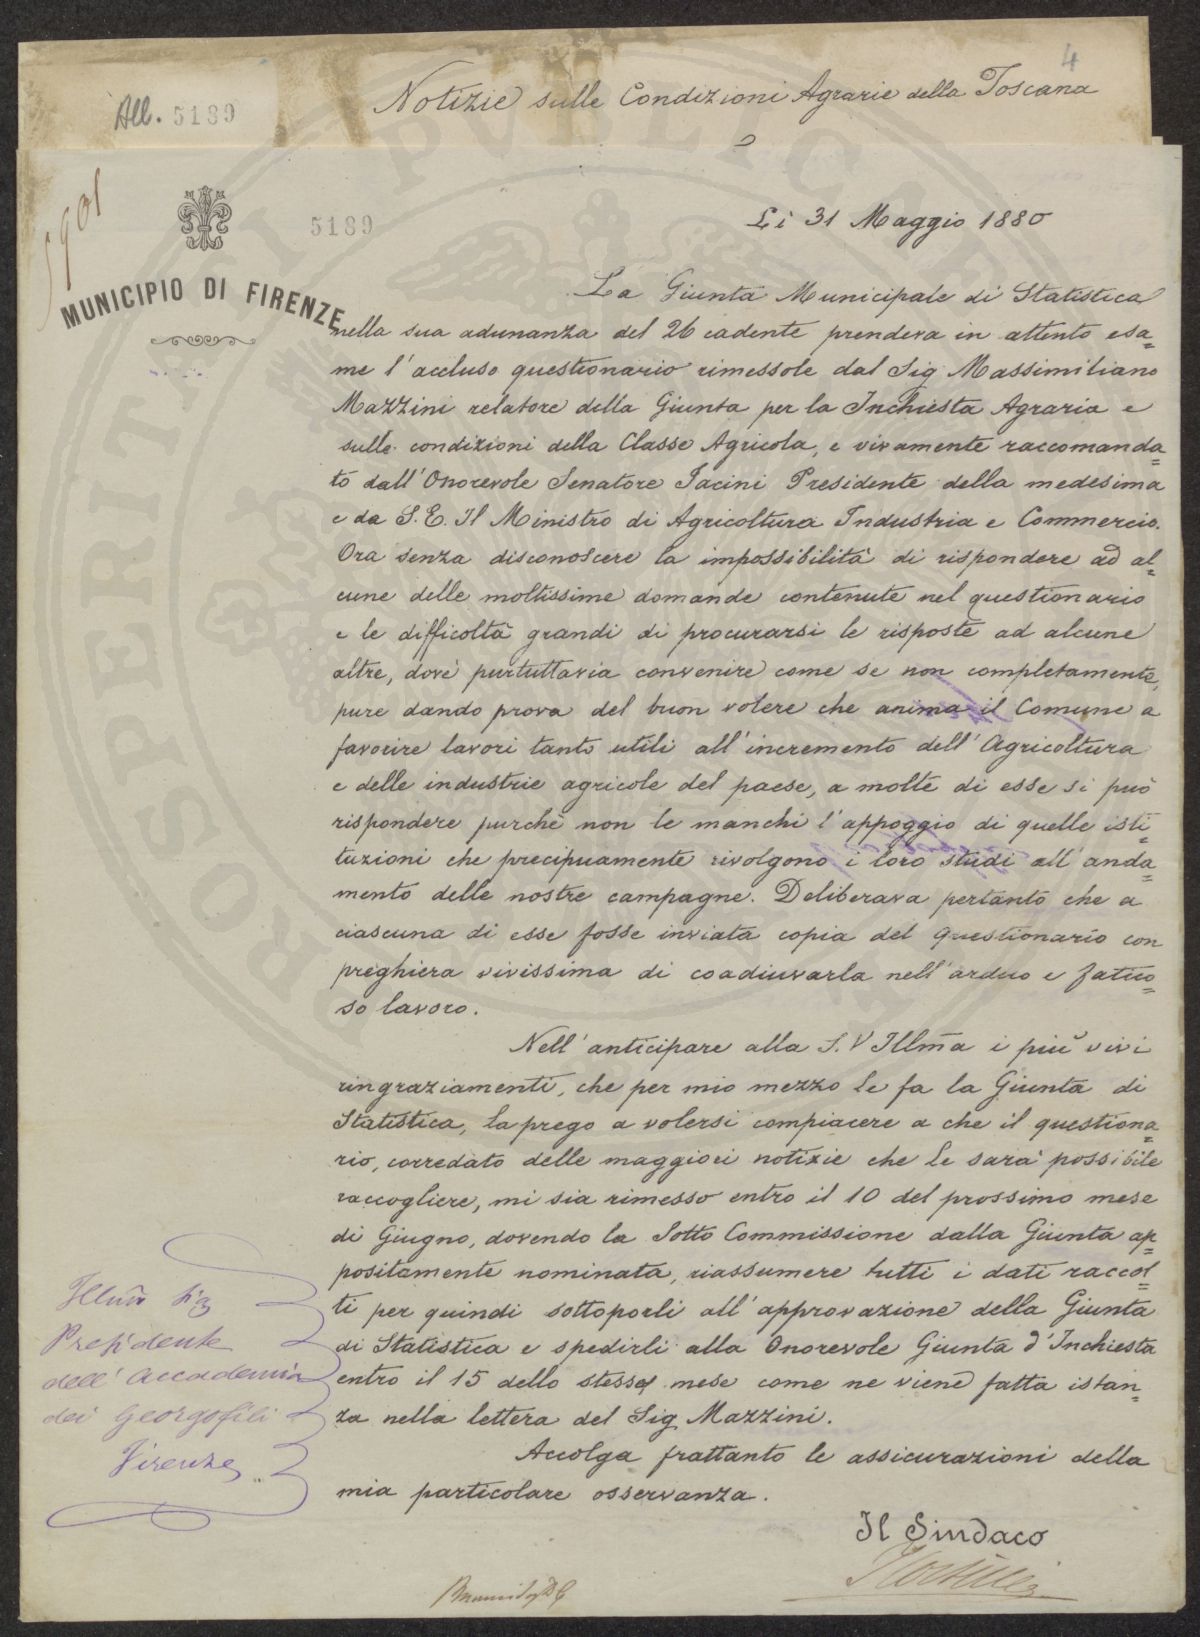 4
Notizie sulle Condizioni Agrarie della Toscana
All. 5189
5901
5189
MUNICIPIO DI FIRENZE
PROSPERITATI PVBLICAE
Li 31 Maggio 1880
La Giunta Municipale di Statistica
nella sua adunanza del 26 cadente prendeva in attento esa=
me l'accluso questionario rimessole dal Sig Massimiliano
Mazzini relatore della Giunta per la Inchiesta Agraria e
sulle condizioni della Classe Agricola, e vivamente raccomanda=
to dall'Onorevole Senatore Jacini Presidente della medesima
e da S. E. Il Ministro di Agricoltura Industria e Commercio.
Ora senza disconoscere la impossibilità di rispondere ad al=
cune delle moltissime domande contenute nel questionario
e le difficoltà grandi di procurarsi le risposte ad alcune
altre, dovè purtuttavia convenire come se non completamente,
pure dando prova del buon volere che anima il Comune a
favorire lavori tanto utili all'incremento dell'Agricoltura
e delle industrie agricole del paese, a molte di esse si può
rispondere purchè non le manchi l'appoggio di quelle isti=
tuzioni che precipuamente rivolgono i loro studi all'anda=
mento delle nostre campagne. Deliberava pertanto che a
ciascuna di esse fosse inviata copia del questionario con
preghiera vivissima di coadiuvarla nell'arduo e fatico=
so lavoro.
Nell'anticipare alla S. V Illma i più vivi
ringraziamenti, che per mio mezzo Le fa la Giunta di
Statistica, La prego a volersi compiacere a che il questiona=
rio, corredato delle maggiori notizie che Le sarà possibile
raccogliere, mi sia rimesso entro il 10 del prossimo mese
di Giugno, dovendo la Sotto Commissione dalla Giunta ap=
positamente nominata, riassumere tutti i dati raccol=
ti per quindi sottoporli all'approvazione della Giunta
di Statistica e spedirli alla Onorevole Giunta d'Inchiesta
entro il 15 dello stesso mese come ne viene fatta istan=
za nella lettera del Sig. Mazzini.
Accolga frattanto le assicurazioni della
mia particolare osservanza.
Il Sindaco
Illmo Sig
Presidente
dell'Accademia
dei Georgofili
Firenze